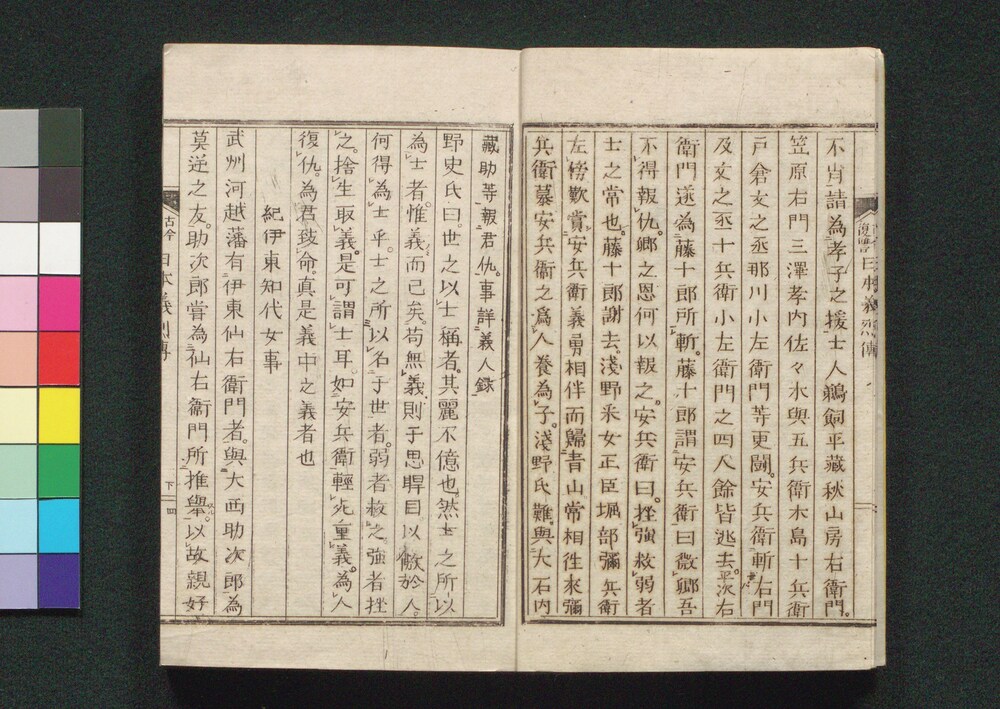 不肖請為孝子之援士人鵜飼平藏秋山房右衛門。
笠原右門三澤孝内佐々木與五兵衛木島十兵衛
戸倉丈之丞那川小左衛門等更闘。安兵衛斬右門
及丈之丞十兵衛小左衛門之四人餘皆逃去。平次右
衛門遂為藤十郎所斬。藤十郎謂安兵衛曰微卿吾
不得報仇。卿之恩何以報之。安兵衛曰。挫強救弱者
士之常也。藤十郎謝去。淺野釆女正臣堀部彌兵衛
左傍歎賞安兵衛義勇相伴而歸青山常相往來彌
兵衛慕安兵衛之爲人養為子。淺野氏難與大石内
藏助等報君仇。事詳義人録
野史氏曰。世之以士稱者。其麗不億也然士之所以
為士者惟義而已矣。苟無義則于思睅目。以傲於人。
何得為士乎。士之所以名于世者。弱者救之。強者挫
之。捨生取義。是可謂士耳。如安兵衛輕死重義。為人
復仇。為君致命。真是義中之義者也
紀伊東知代女事
武州河越藩有伊東仙右衛門者。與大西助次郎為
莫逆之友。助次郎嘗為仙右衛門所推舉。以故親好
古今
日本義烈傳
下
四
復讐
日本義烈傳